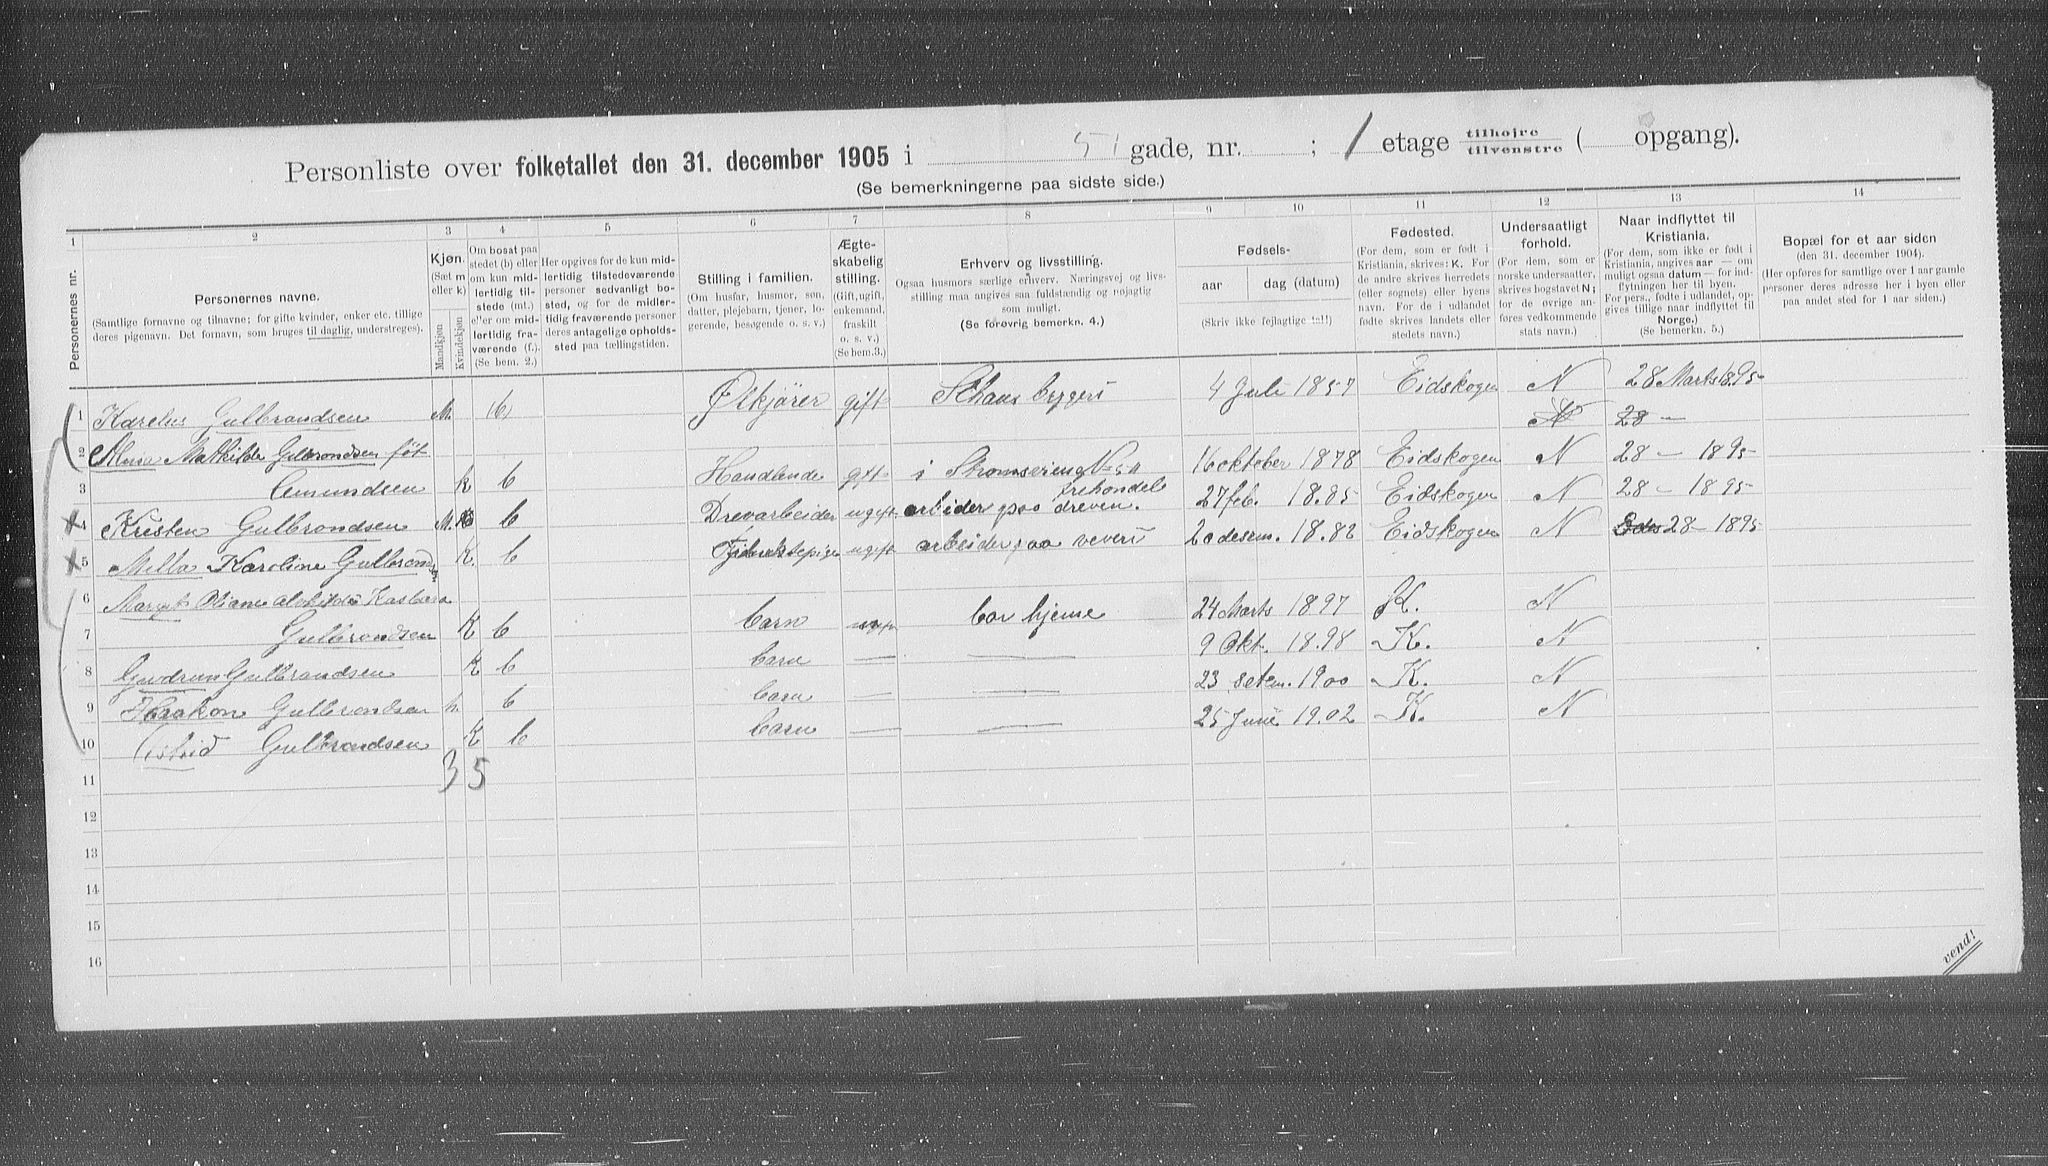 Personliste over folketallet den 31. december 1905 i 51 gade, nr. ; 1 etage tilhøjre tilvenstre ( opgang).
(Se bemerkningerne paa sidste side.)
1 2 3 4 5 6 7 8 9 10 11 12 13 14
Personernes nr.
Personernes navne.
(Samtlige fornavne og tilnavne; for gifte kvinder, enker etc. tillige
deres pigenavn. Det fornavn, som bruges til daglig, understreges).
Kjøn.
(Sæt m
eller k)
Mandkjøn
Kvindekjøn
Om bosat paa
stedet (b) eller
om kun mid-
lertidig til-
stede (mt.)
eller om mid-
lertidig fra-
værende (f.).
(Se bem. 2.)
Her opgives for de kun mid-
lertidig tilstedeværende
personer sedvanligt bo-
sted, og for de midler-
tidig fraværende personer
deres antagelige opholds-
sted paa tællingstiden.
Stilling i familien.
(Om husfar, husmor, søn,
datter, plejebarn, tjener, lo-
gerende, besøgende o. s. v.)
Ægte-
skabelig
stilling.
(Gift, ugift,
enkemand,
fraskilt
o. s. v.)
(Se bem.3.)
Erhverv og livsstilling.
Ogsaa husmors særlige erhverv. Næringsvej og livs-
stilling maa angives saa fuldstændig og nøjagtig
som muligt.
(Se forøvrig bemerkn. 4.)
Fødsels-
aar dag (datum)
(Skriv ikke fejlagtige tal!)
Fødested.
(For dem, som er født i
Kristiania, skrives: K. For
de andre skrives herredets
(eller sognets) eller byens
navn. For de i udlandet
fødte skrives landets eller
stedets navn.)
Undersaatligt
forhold.
(For dem, som er
norske undersaatter,
skrives bogstavet N;
for de øvrige an-
føres vedkommende
stats navn.)
Naar indflyttet til
Kristiania.
(For dem, som ikke er født i
Kristiania, angives aar — om
muligt ogsaa datum — for ind-
flytningen her til byen.
For pers., fødte i udlandet, op-
gives tillige naar indflyttet til
Norge.)
(Se bemerkn. 5.)
Bopæl for et aar siden
(den 31. december 1904).
(Her opføres for samtlige over 1 aar gamle
personer deres adresse her i byen eller
paa andet sted for 1 aar siden.)
1 Karelius Gulbrandsen M. b Ølkjører gift 4 Juli 1857 Eidskogen N 28 Marts 1895
N 28 —
2 Mathilde Gulbrondsen føt
3 Amundsen k b Handlende gift i 16 oktober 1878 Eidskogen N 28 — 1895
4 Kristen Gulbrondsen M. b ugift arbider paa 27 feb. 18.85 Eidskogen N 28 — 1895
5 Milla Karoline Gulbrond K. b ugift arbeider paa veveri 20 desem. 18.82 Eidskogen N 28 — 1895
6 Oliane
7 Gulbrondsen K b barn hjeme 24 Marts 1897 K. N
8 Gudrun Gulbrandsen K b barn — — 9 Okt. 18.98 K. N
9 Haakon Gulbrondsen b barn — — 23 setem. 1900 K. N
10 Astrid Gulbrandsen K b barn — — 25 Juni 19.02 K. N
11 3 5
12
13
14
15
16
vend!